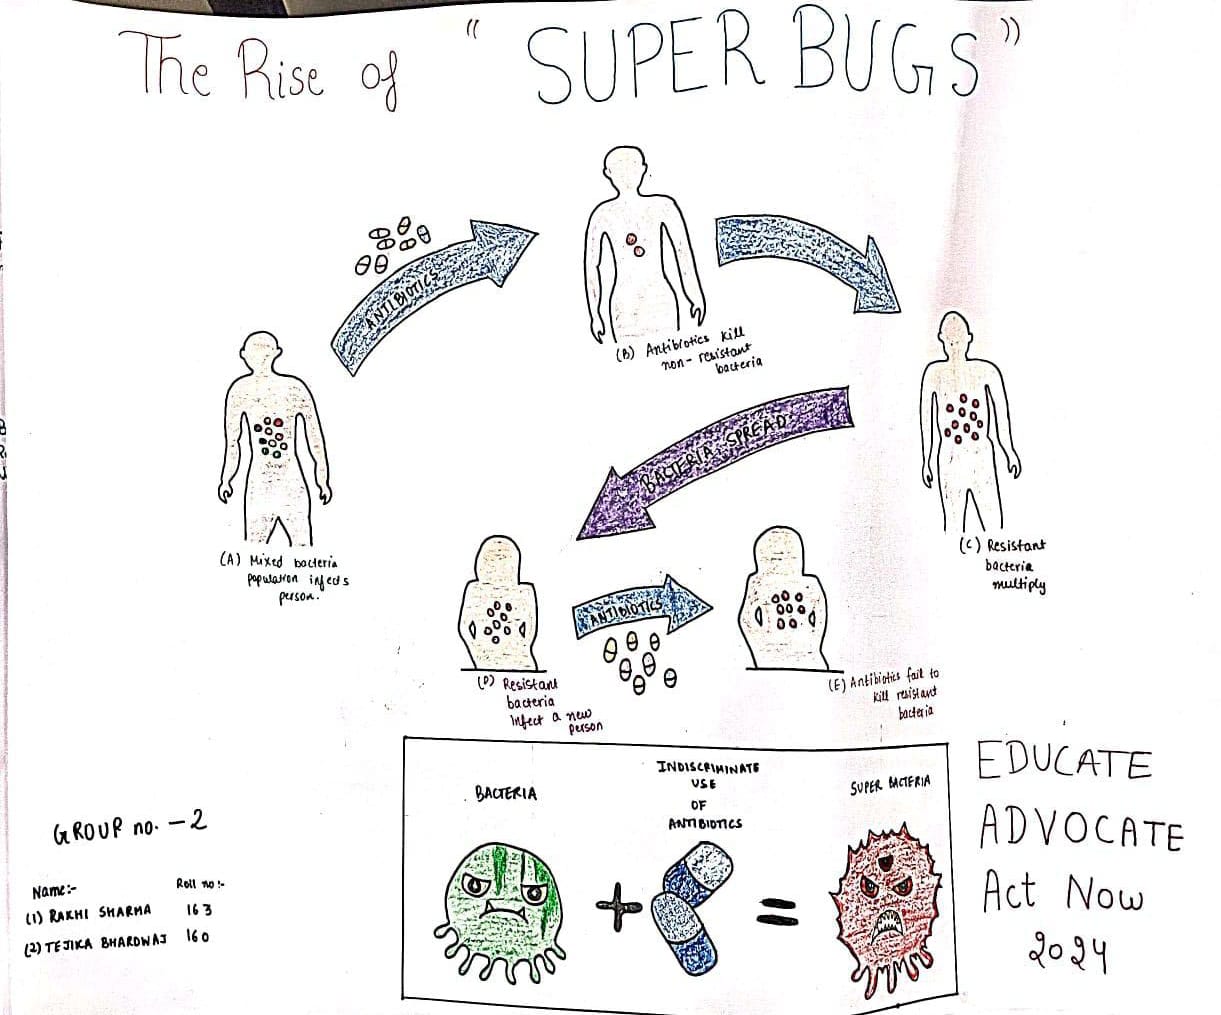 The Rise of "SUPER BUGS"
ANTIBIOTICS
(B) Antibiotics kill
non-resistant
bacteria
BACTERIA SPREAD
(A) Mixed bacteria
population infects
person.
(C) Resistant
bacteria
multiply
ANTIBIOTICS
(D) Resistant
bacteria
Infect a new
person
(E) Antibiotics fail to
kill resistant
bacteria
BACTERIA
INDISCRIMINATE
USE
OF
ANTIBIOTICS
SUPER BACTERIA
+
=
EDUCATE
ADVOCATE
Act Now
2024
GROUP no. - 2
Name:- Roll no:-
(1) RAKHI SHARMA 163
(2) TEJIKA BHARDWAJ 160